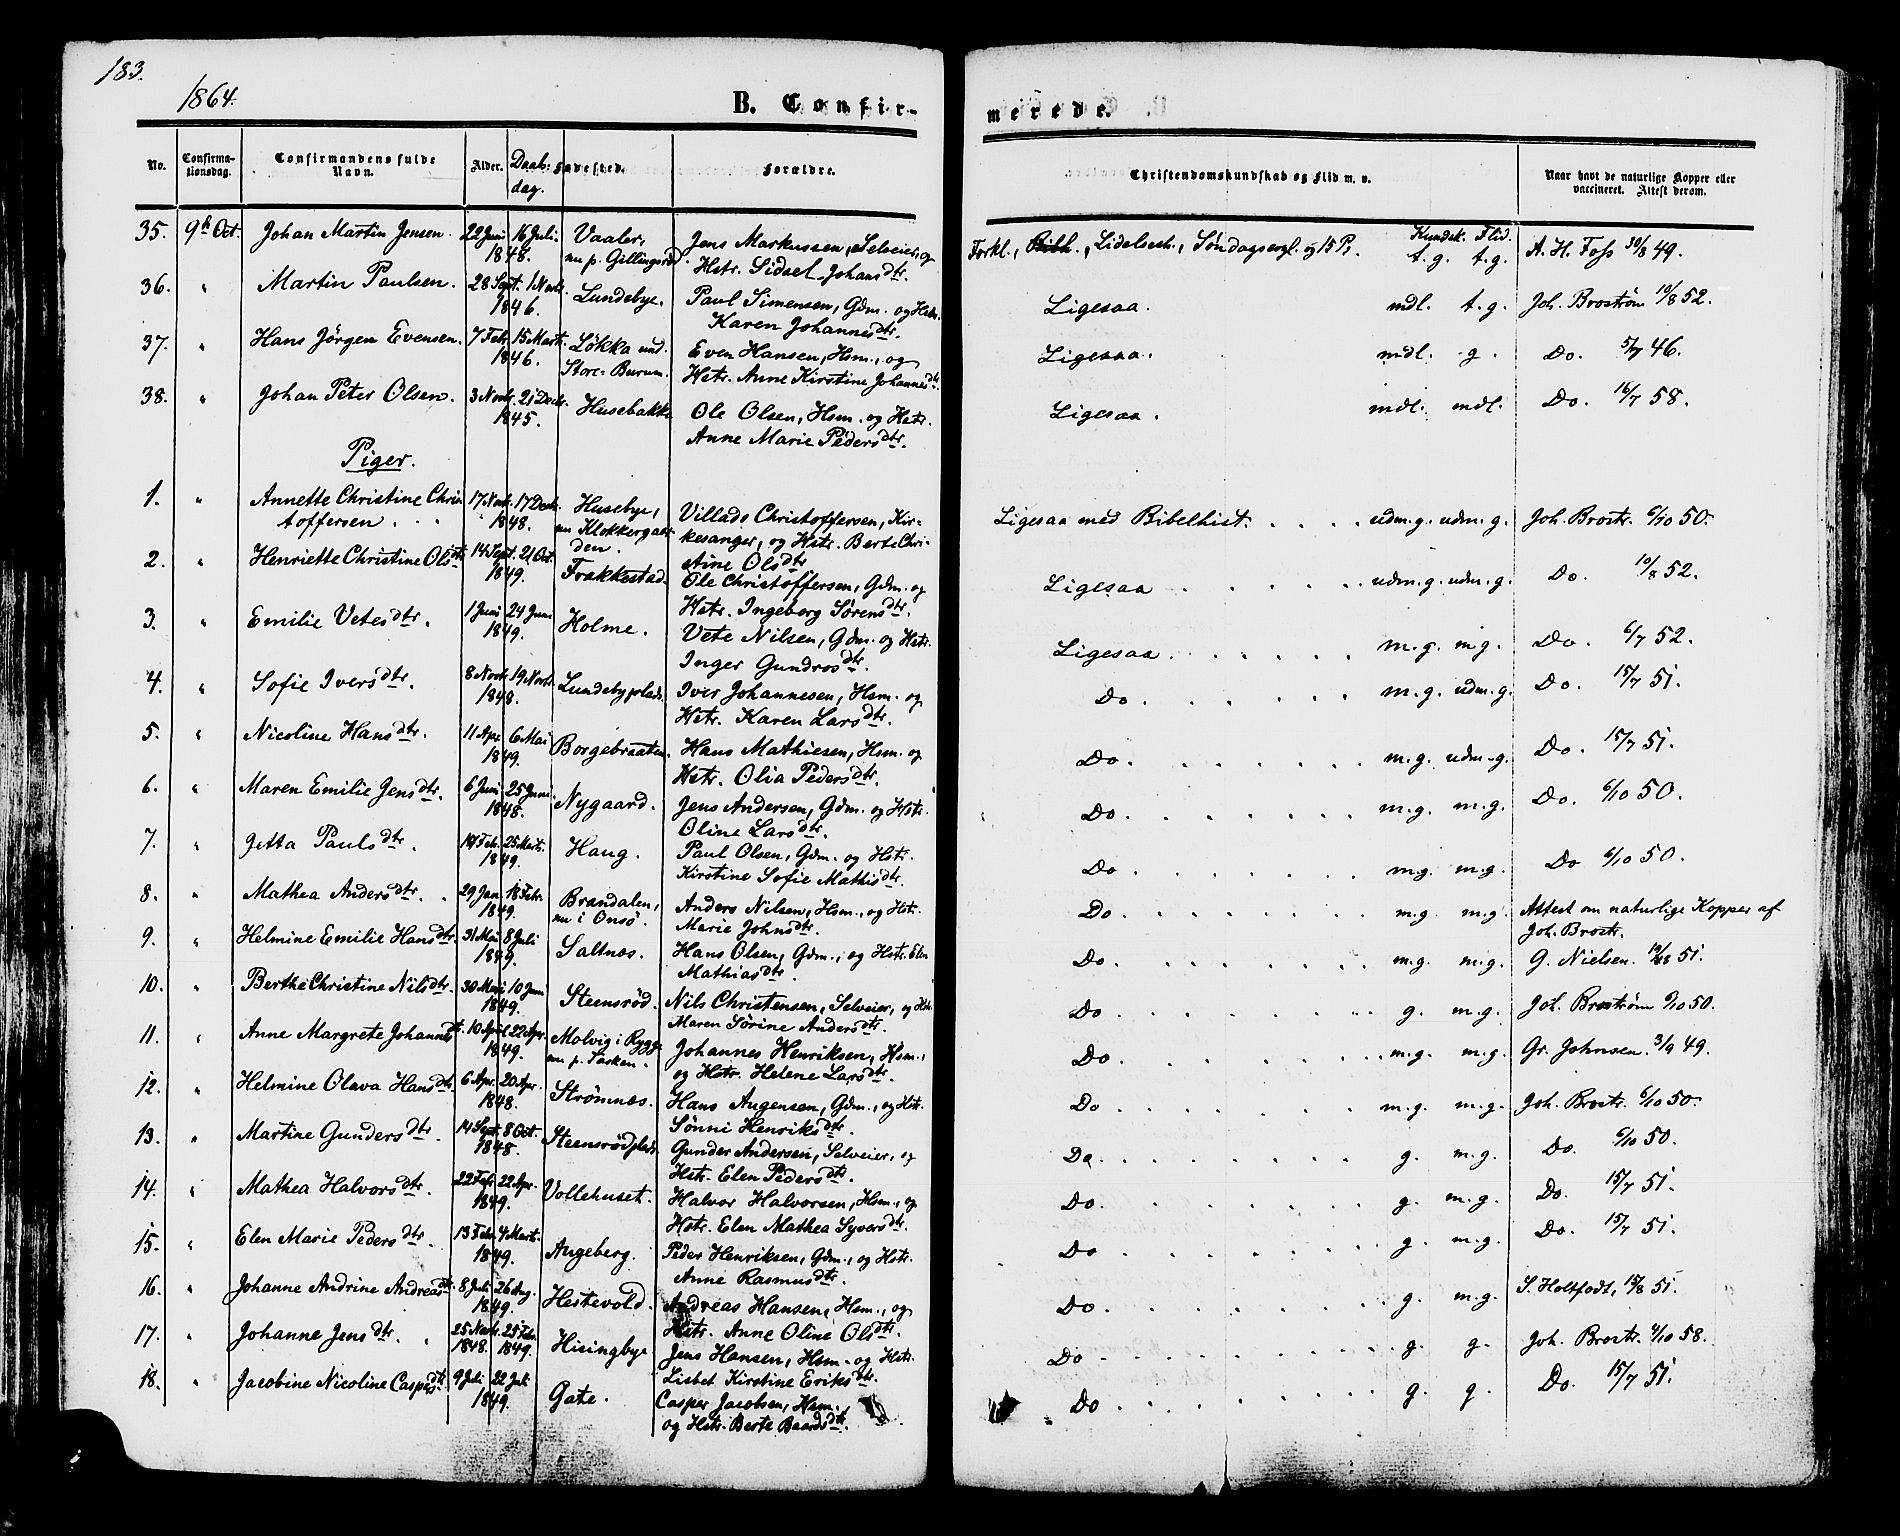 183.
1864.
B. Confir-
merede.
No.
Confirma-
tionsdag.
Confirmandens fulde
Navn.
Alder.
Daabs-
dag.
Fødested.
Forældre.
Christendomskundskab og Flid m. v.
Naar havt de naturlige Kopper eller
vaccineret. Attest derom.
Kundsk. Flid.
35. 9de Oct. Johan Martin Jensen. 22 Juni 16 Juli Vaaler, Jens Markussen, Selveier, og Forkl., Bibh., Lidelsesh., Søndagsevgl. og 15 Ps. t.g. t.g. A. H. Foss 30/8 49.
1848. nu p. Gillingsrød. Hstr. Sidsel Johansdtr.
36. " Martin Paulsen. 28 Sept. 1 Novbr. Lundebye. Paul Simensen, Gdm. og Hstr. Ligesaa. mdl. t.g. Joh. Broström 10/8 52.
1846. Karen Johannesdtr.
37. " Hans Jörgen Evensen. 7 Febr. 15 Marts. Løkka und. Even Hansen, Hsm., og Ligesaa. mdl. g. Do. 5/7 46.
1846. Store-Burum. Hstr. Anne Kirstine Johannesdtr.
38. " Johan Peter Olsen. 3 Novbr. 21 Decbr. Husebakke Ole Olsen, Hsm. og Hstr. Ligesaa. mdl. mdl. Do. 16/7 58.
1845. Anne Marie Pedersdtr.
Piger.
1. " Annette Christine Chris- 17 Novbr. 17 Decbr. Husebye, Villads Christoffersen, Kir- Ligesaa med Bibelhist. udm.g. udm.g. Joh. Brostr. 6/10 50.
toffersen. 1848. nu Klokkergaar- kesanger, og Hstr. Berte Chri-
den. stine Olsdtr.
2. " Henriette Christine Olsdtr. 14 Sept. 21 Oct. Frakkestad. Ole Christoffersen, Gdm. og Ligesaa udm.g. udm.g. Do. 10/8 52.
1849. Hstr. Ingeborg Sørensdtr.
3. " Emilie Vetesdtr. 1 Juni 24 Juni Holme. Vete Nilsen, Gdm. og Hstr. Ligesaa. m.g. m.g. Do. 6/7 52.
1849. Inger Gundrosdtr.
4. " Sofie Iversdtr. 8 Novbr. 19 Novbr. Lundebyplads. Iver Johannesen, Hsm. og Do. m.g. udm.g. Do. 15/7 51.
1848. Hstr. Karen Larsdtr.
5. " Nicoline Hansdtr. 11 Apr. 6 Mai Borgebraaten. Hans Mathiesen, Hsm. og Do. m.g. udm.g. Do. 15/7 51.
1849. Hstr. Olia Pedersdtr.
6. " Maren Emilie Jensdtr. 6 Juni 25 Juni Nygaard. Jens Andersen, Gdm. og Hstr. Do. m.g. m.g. Do. 6/10 50.
1848. Oline Larsdtr.
7. " Jetta Paulsdtr. 14 Feb. 25 Marts. Haug. Paul Olsen, Gdm. og Hstr. Do. m.g. m.g. Do 6/10 50.
1849. Kirstine Sofie Mathisdtr.
8. " Mathea Andersdtr. 29 Jan. 18 Febr. Brandalen, Anders Nilsen, Hsm., og Hstr. Do. m.g. m.g. Attest om naturlige Kopper af
1849. nu i Onsö. Marie Johnsdtr. Joh. Brostr.
9. " Helmine Emilie Hansdtr. 31 Mai 8 Juli Saltnes. Hans Olsen, Gdm., og Hstr. Elen Do. m.g. m.g. G. Nielsen. 51.
1849. Mathiasdtr.
10. " Berthe Christine Nilsdtr. 30 Mai 10 Juni Steensröd. Nils Christensen, Selveier, og Hstr. Do. g. m.g. Joh. Broström 6/10 50.
1849. Maren Sørine Andersdtr.
11. " Anne Margrete Johannesdtr. 10 April 22 Apr. Molvig i Rygge Johannes Henriksen, Hsm., Do. m.g. m.g. Gr. Johnsen. 3/9 49.
1849. nu p. og Hstr. Helene Larsdtr.
12. " Helmine Olava Hansdtr. 6 Apr. 20 Apr. Strömnæs. Hans Augensen, Gdm., og Hstr. Do. m.g. m.g. Joh. Brostr. 6/10 50.
1848. Sønni Henriksdtr.
13. " Martine Gundersdtr. 14 Sept. 8 Oct. Steensrödplads. Gunder Andersen, Selveier, og Do. g. m.g. Do. 6/10 50.
1848. Hstr. Elen Pedersdtr.
14. " Mathea Halvorsdtr. 22 Febr. 22 Apr. Vollehuset. Halvor Halvorsen, Hsm., og Do. g. m.g. Do. 15/7 51.
1849. Hstr. Elen Mathea Syversdtr.
15. " Elen Marie Pedersdtr. 13 Febr. 4 Marts. Augeberg. Peder Henriksen, Gdm., og Hstr. Do. g. m.g. Do. 15/7 51.
1849. Anne Rasmusdtr.
16. " Johanne Andrine Andreasdtr. 8 Juli 26 Aug. Hestevold. Andreas Hansen, Hsm., og Do. g. m.g. S. Holtfodt, 15/8 51.
1849. Hstr. Anne Oline Olsdtr.
17. " Johanne Jensdtr. 25 Novbr. 25 Febr. Hisingbye Jens Hansen, Hsm. og Hstr. Do. g. g. Joh. Brostr. 4/10 58.
1848. 1849. Lisbet Kirstine Eriksdtr.
18. " Jacobine Nicoline Caspersdtr. 9 Juli 22 Juli Gate. Casper Jacobsen, Hsm., Do. g. g. Do. 15/7 51.
1849. og Hstr. Berte Baardsdtr.